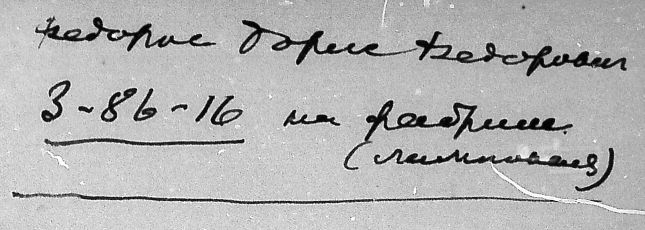 Федоров Борис Федорович
3-86-16 на фабрике